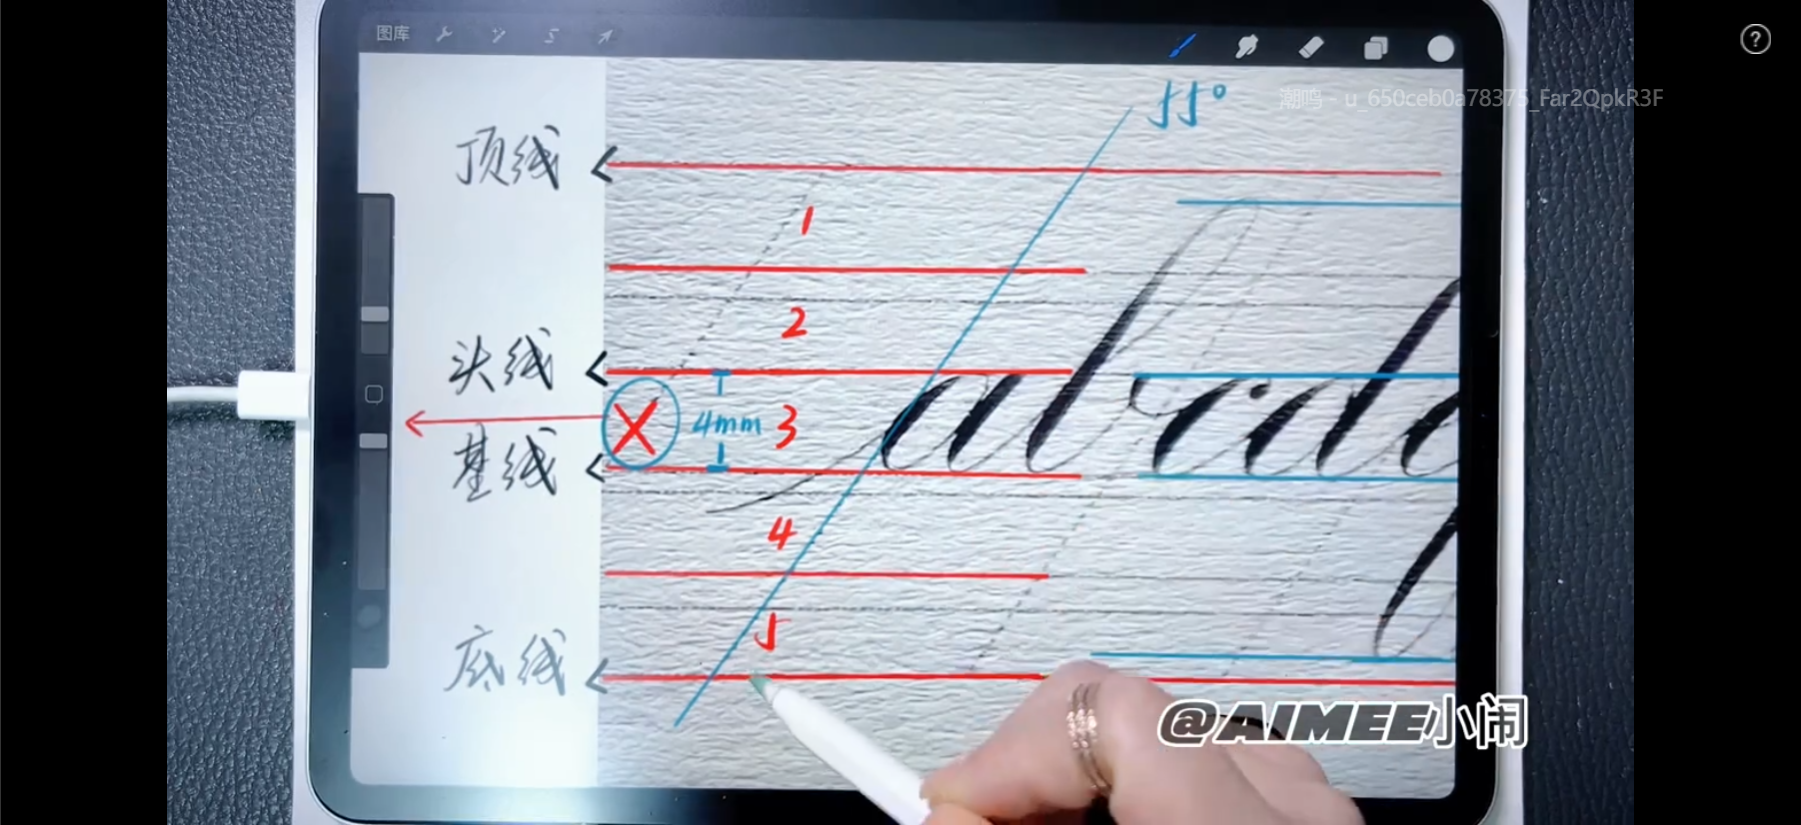 图库
55°
潮鸣 - u_650ceb0a78375_Far2QpkR3F
顶线
1
2
头线
abcd
X
4mm
3
基线
4
5
底线
@AIMEE小闹